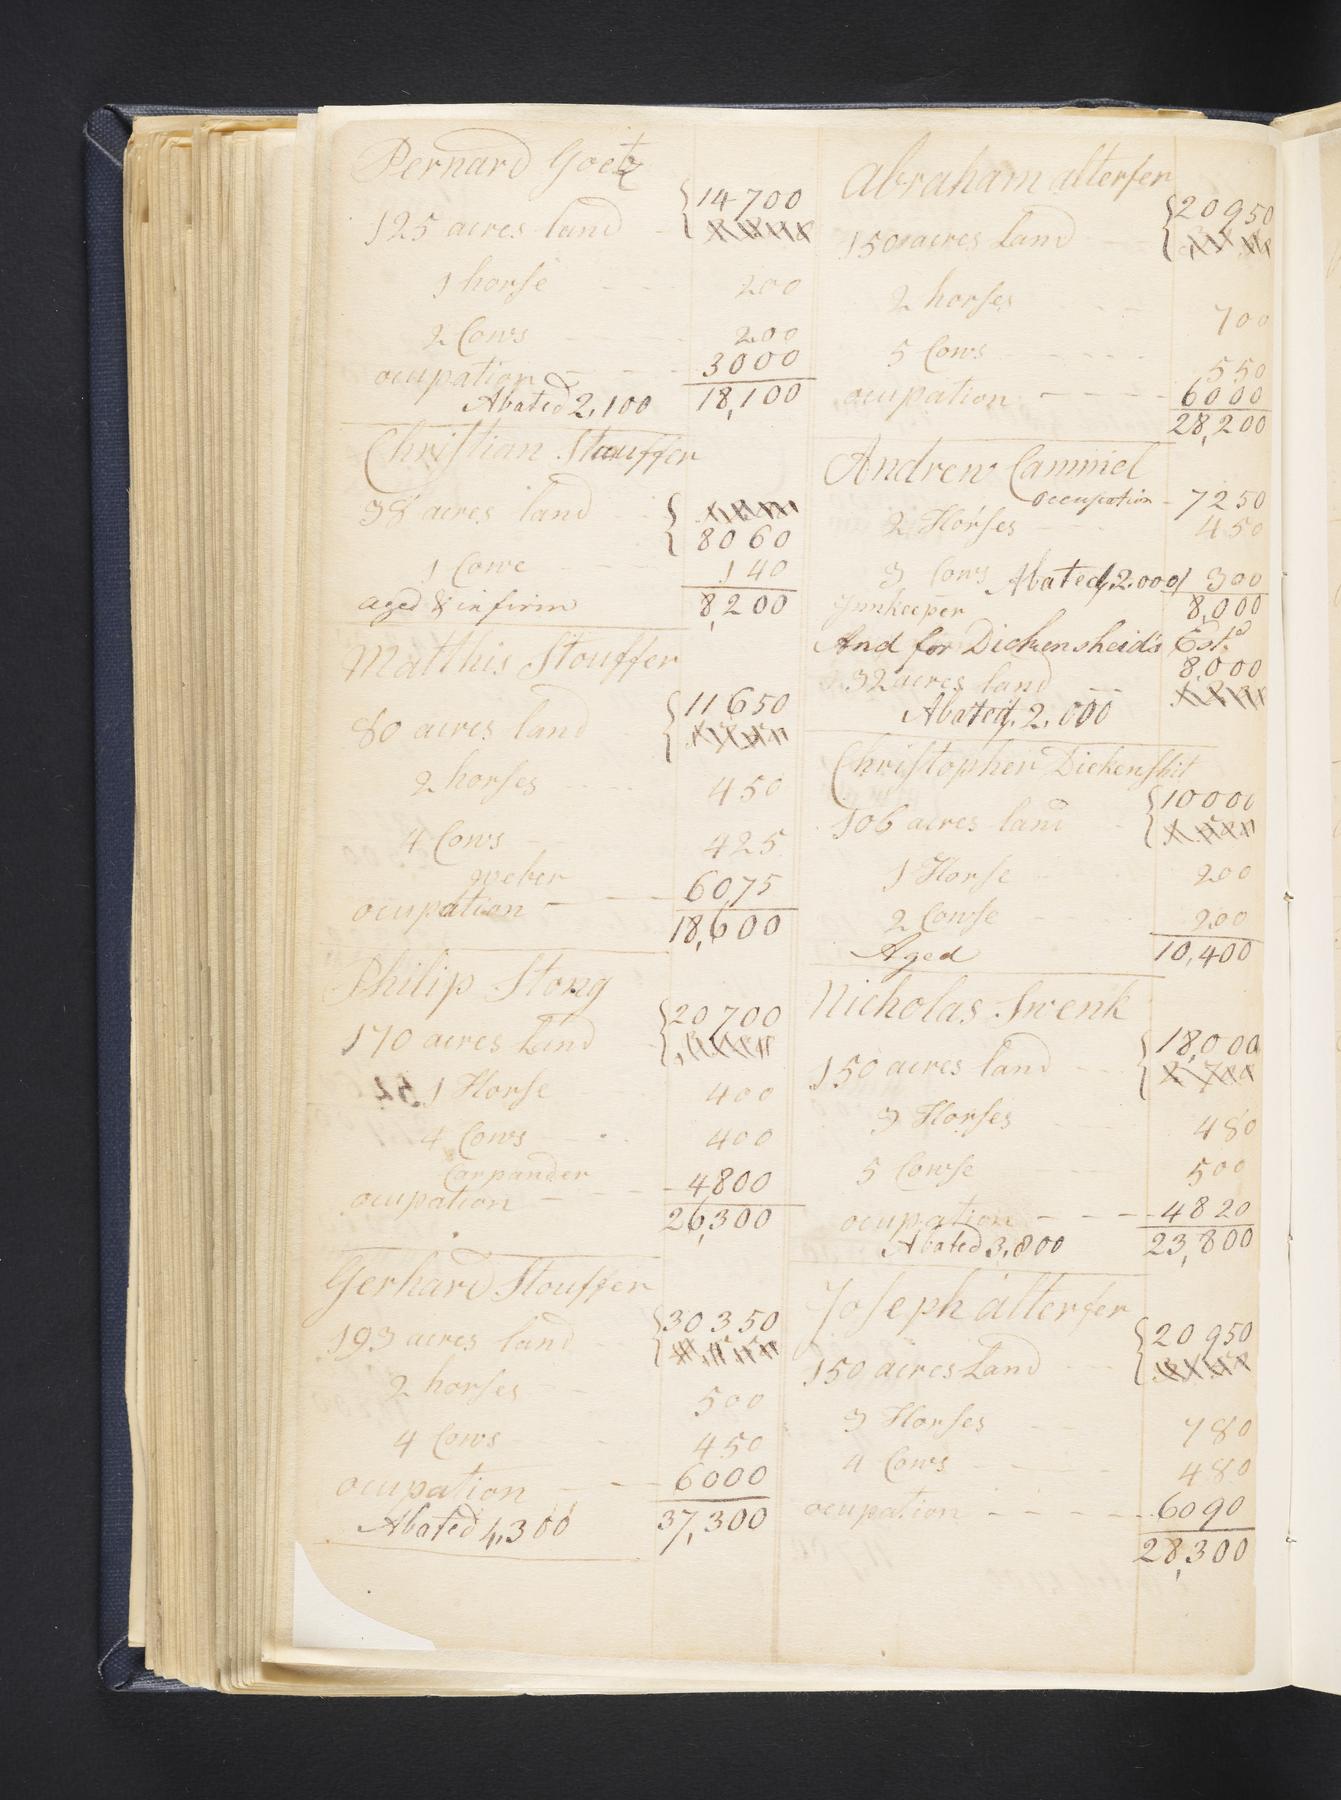 Bernard Goetz
125 acres land 14700
1 horse 200
2 Cows 200
ocupation 3000
Abated 2,100 18,100
Christian Stauffer
38 acres land 8060
1 Cowe 140
aged & infirm 8,200
Matthis Stouffer
80 acres land 11650
2 horses 450
4 Cows 425
weber
ocupation 6075
18,600
Philip Stong
170 acres Land 20700
1 Horse 400
4 Cows 400
Carpander
ocupation 4800
26,300
Gerhard Stouffer
193 acres land 30350
2 horses 500
4 Cows 450
ocupation 6000
Abated 4,300 37,300
Abraham alterfer
150 acres Land 20950
2 horses 700
5 Cows 550
ocupation 6000
28,200
Andrew Cammel
occupation 7250
2 Horses 450
3 Cows Abated 2.000 300
Innkeeper 8,000
And for Dickensheid's Estd
32 acres land 8,000
Abated 2,000
Christopher Dickenshit
106 acres land 10000
1 Horse 200
2 Cowse 200
Aged 10,400
Nicholas Swenk
150 acres land 18,000
3 Horses 480
5 Cowse 500
ocupation 4820
Abated 3,800 23,800
Joseph alterfer
150 acres Land 20950
3 Horses 780
4 Cows 480
ocupation 6090
28,300